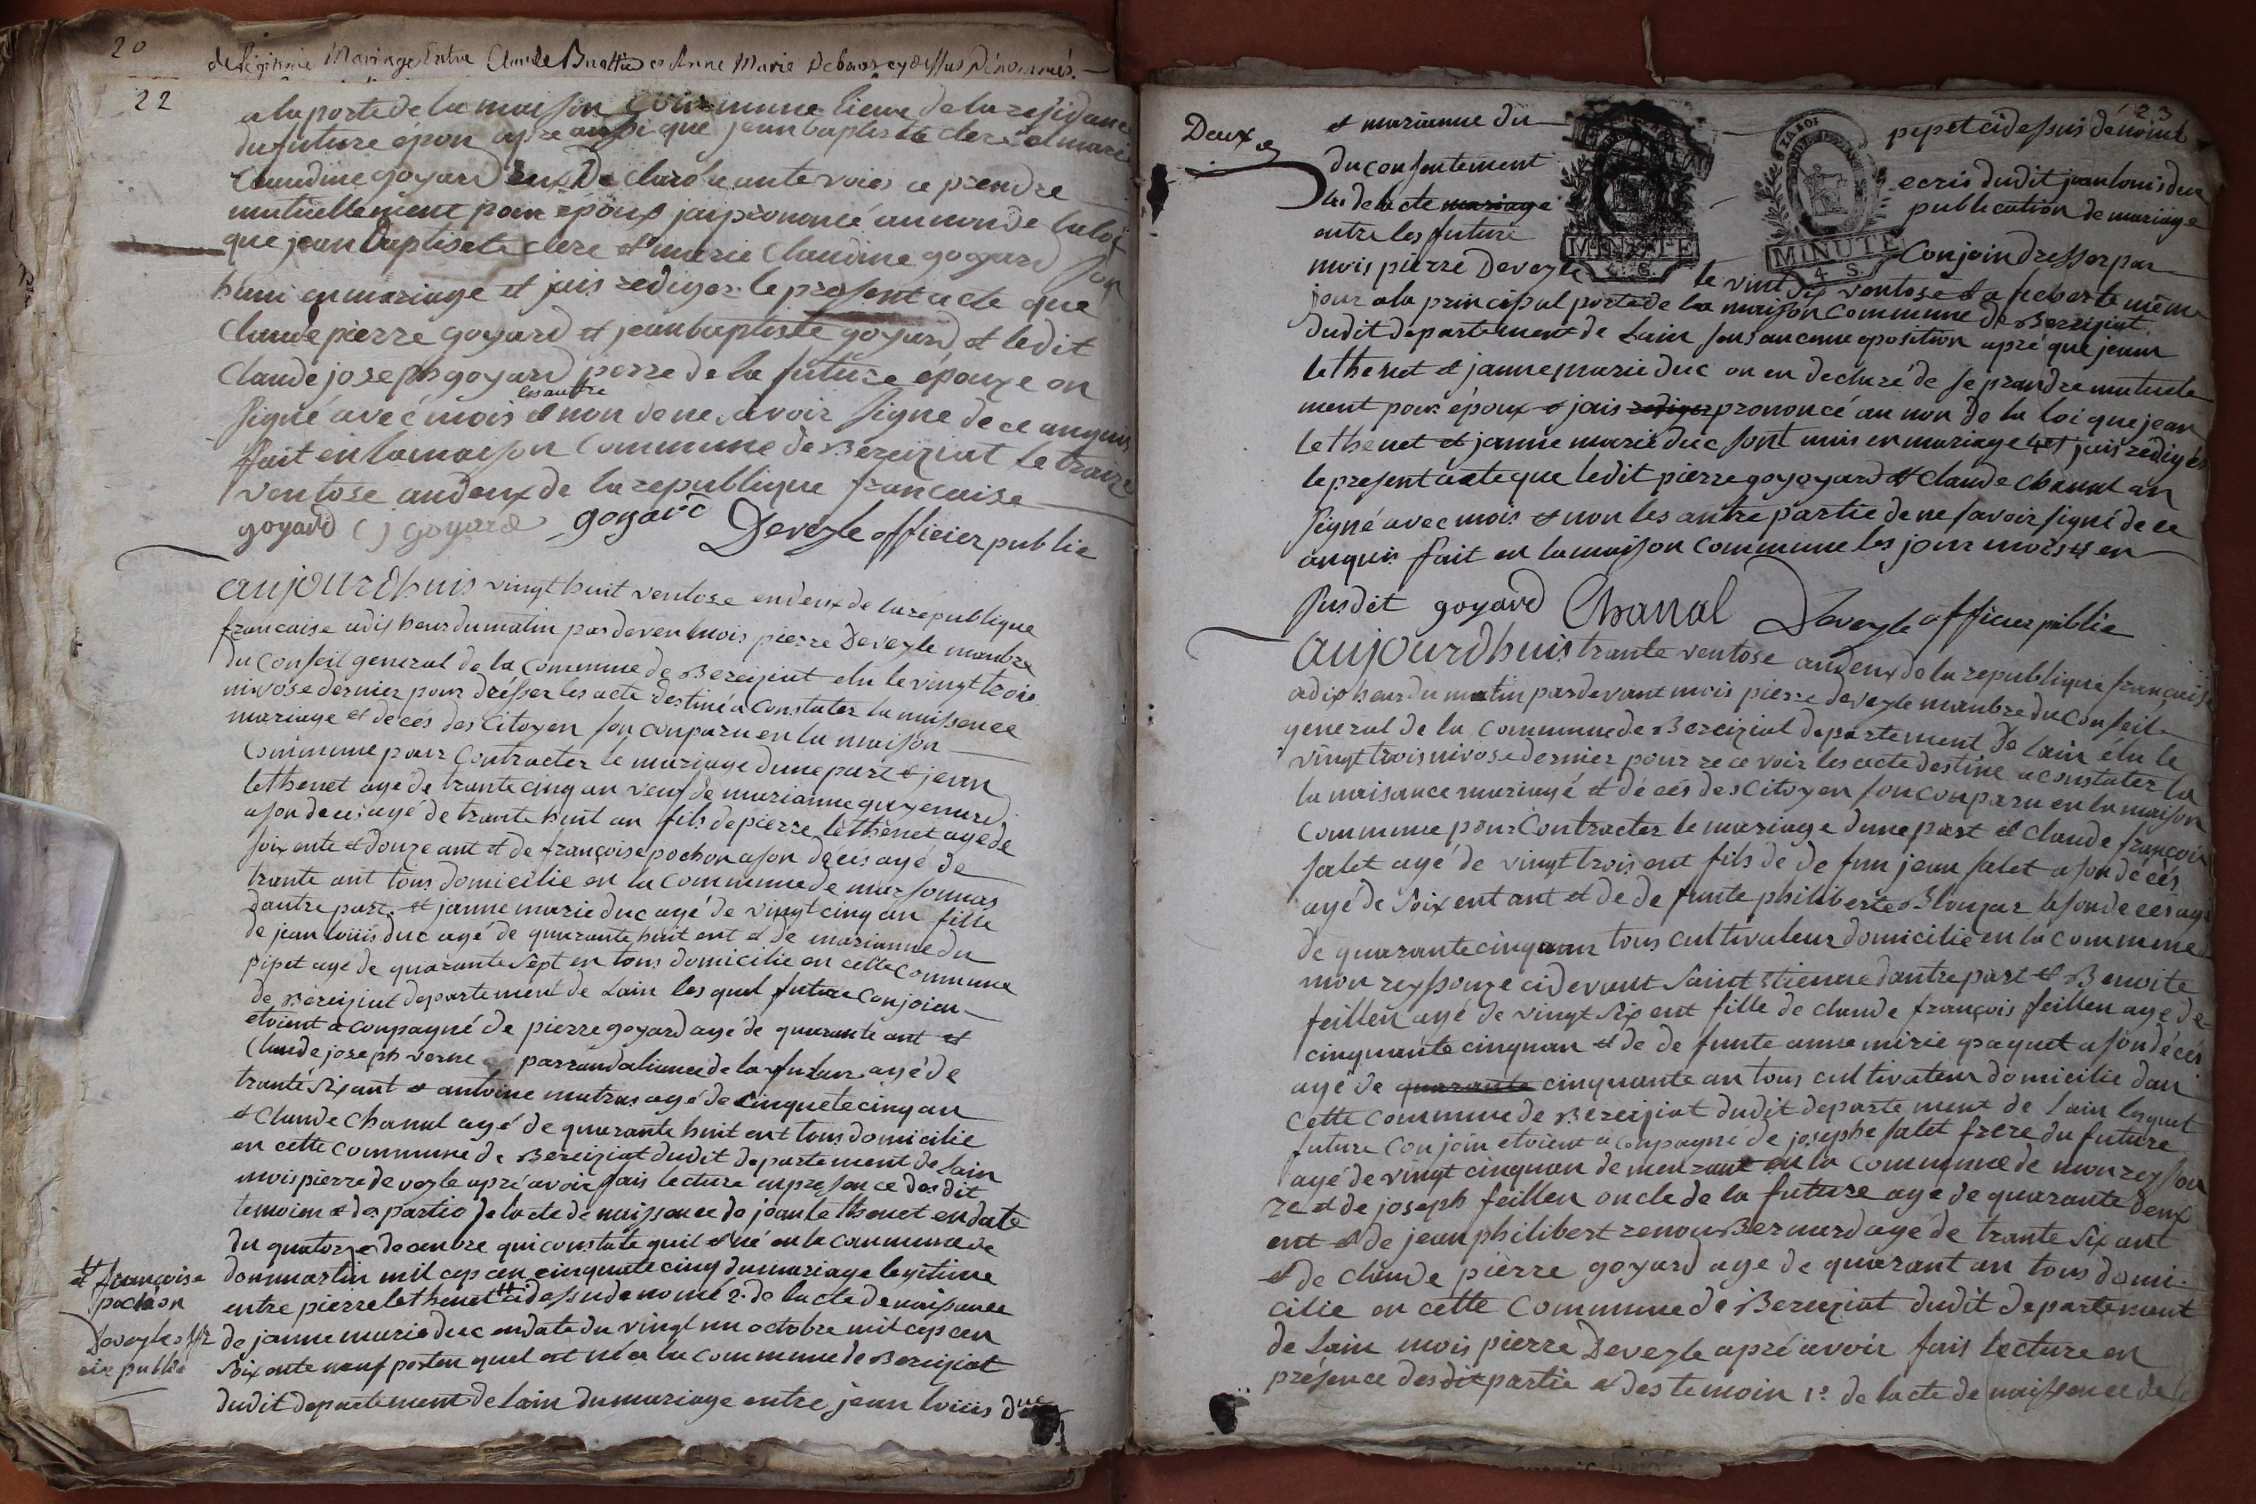 20
de légitime Mariage Entre Claude Anne Marie
22
a la porte de la maison commune lieux de la residance
du future épon apre ausi que jean baptiste clerc et marie
Claudine goyard eux Declaré a ante voies ce prendre
mutuellement pour époux jai prononcé au nom de la loi
que jean baptisete clerc et marie Claudine goyard son
huni en mariage et jais rediger le present acte que
Claude pierre goyard et jean baptiste goyard et ledit
Claude joseph goyard perre de la future épouxe on
les autre
signé avec mois et non de ne savoir signe de ce anquis
fait en la maison Commune de Bereiziat le traize
ventose an deux de la republique francaise
goyard C J goyard goyard Deveyle officier public
aujourdhuis vingt huit ventose en deux de la république
francaise a dix heur du matin par deven mois pierre Deveyle manbre
du Conseil general de la Commune de Bereiziat elu le vingt trois
nivose dernier pour drésser les acte destiné a Constater la naissence
mariage et décés des Citoyen son conparu en la maison
Commune pour Contracter le mariage dune part et jean
lethenet agé de trante cinq an veuf de marianne guyenard
a son decés agé de trante huit an fils de pierre lethenet age de
soixente et douze ant et de françoise pochon a son décés agé de
trante ant tous domicilie en la commune de marsonnas
dautre part et janne marie duc agé de vingt cinq an fille
de jean louiis duc agé de quarante huit ent et de marianne du
pipet age de quarante sept en tous domicilie en cette Commune
de Bereiziat departement de Lain les quel future Conjoien
etoient aconpagné de pierre goyard agé de quarante ant et
Claude joseph verne parran daliance de la future agé de
tranté six ant et antoine matras agé de cinquete cinq an
et Claude Chanal agé de quarante huit ent tous domicilie
en cette Commune de Bereiziat dudit departement de Lain
mois pierre de veyle apré avoir fais lecture en presence des dit
temoien et des partie de lacte de naissence de jean lethenet en date
du quatorze decenbre qui constate quil et né en la commune de
donmartin mil cep cen cinquate cinq du mariage legitime
entre pierre lethenet ci dessu denomé 2. de lacte de naissance
de janne marie duc en date du vingt un octobre mil cep cen
soix ente neuf porten quel est né a la commune de Bereiziat
dudit departement de Lain du mariage entre jean louiis duc
et françoise
pochon
Deveyle offi
cie public
23
Deux
et marianne du pipet ci dessus dénomé
du consentement ecris dudit jean louis duc
4. de lacte mariage publication de mariage
entre les future Conjoin dresser par
mois pierre Deveyle le vint six ventose et aficher le même
MINUTE
4 S.
MINUTE
4 S.
jour a la principal porte de la maison commune de Bereiziat
dudit departement de Lain sens aucune oposition apré que jean
lethenet et janne marie duc on en declaré de se prandre mutuele
ment pour époux et jais rediger prononcé au non de la loi que jean
lethenet et janne marie duc sont unis en mariage et jais rédigér
le present acte que ledit pierre goyoyard et Claude chanal an
signé avec mois et non les autre partie de ne savoir signé de ce
anquis fait en la maison commune les jour mois et en
susdit goyard Chanal Deveyle officier public
aujourdhuis trante ventose an deux de la republique française
a dix heur du matin par devant mois pierre deveyle manbre du conseil
general de la commune de Bereiziat departement de Lain elu le
vingt trois nivose dernier pour recevoir les acte destine a constater la
la naisance mariagé et décés des Citoyen son conparu en la maison
Commune pour Contracter le mariage dune part et Claude françois
salet agé de vingt trois ent fils de de fun jean salet a son décés
agé de soixent ant et de de funte philiberte Blonzar a son decés agé
de quarante cinq an tous cultivateur domicilié en la commune
mon reyssouze ci devant Saint Etienne dautre part et Benoite
feillen agé de vingt six ent fille de claude françois feillen age de
cinquante cinq nan et de de funte anne mirie paquet a son décés
agé de quarante cinquante an tous cultivateur domicilie dan
cette commune de Bereiziat dudit departe ment de Lain lesquel
future conjoin etoient a conpagné de josephe salet frere du future
agé de vingt cinq nan demeurant en la commune de mon reyssou
ze et de joseph feillen oncle de la future age de quarante deux
ent et de jean philibert renou Bernard agé de trante six ant
et de claude pierre goyard age de quarant an tous domi
cilie en cette commune de Bereiziat dudit departement
de Lain mois pierre Deveyle apré avoir fais lecture en
présence des dit partie et des temoin 1. de lacte de naissence de